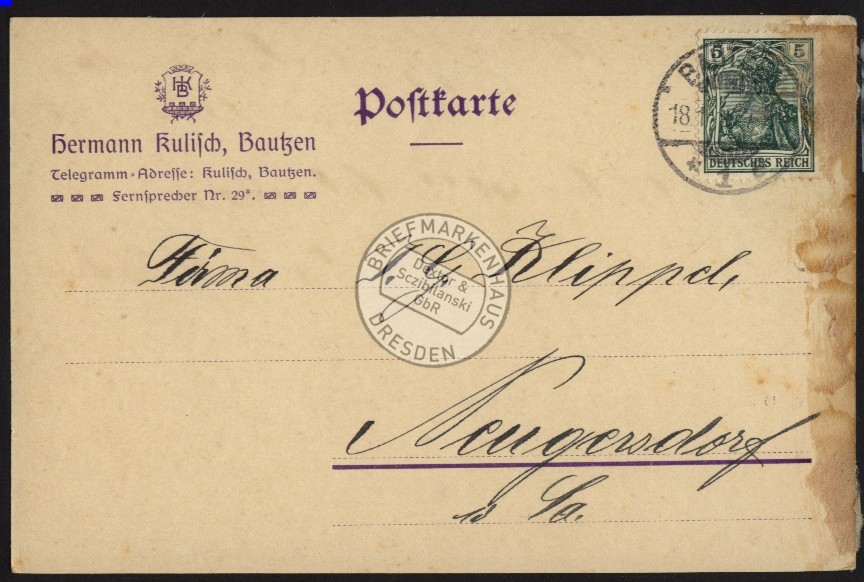 HBK
Hermann Kulisch, Bautzen
Telegramm-Adresse: Kulisch, Bautzen.
Fernsprecher Nr. 29*.
Postkarte
5 5
DEUTSCHES REICH
18.1
* 1
BRIEFMARKENHAUS
Dektor &
Sczibilanski
GbR
DRESDEN
Firma Klippel,
Neugersdorf
i/ Sa.